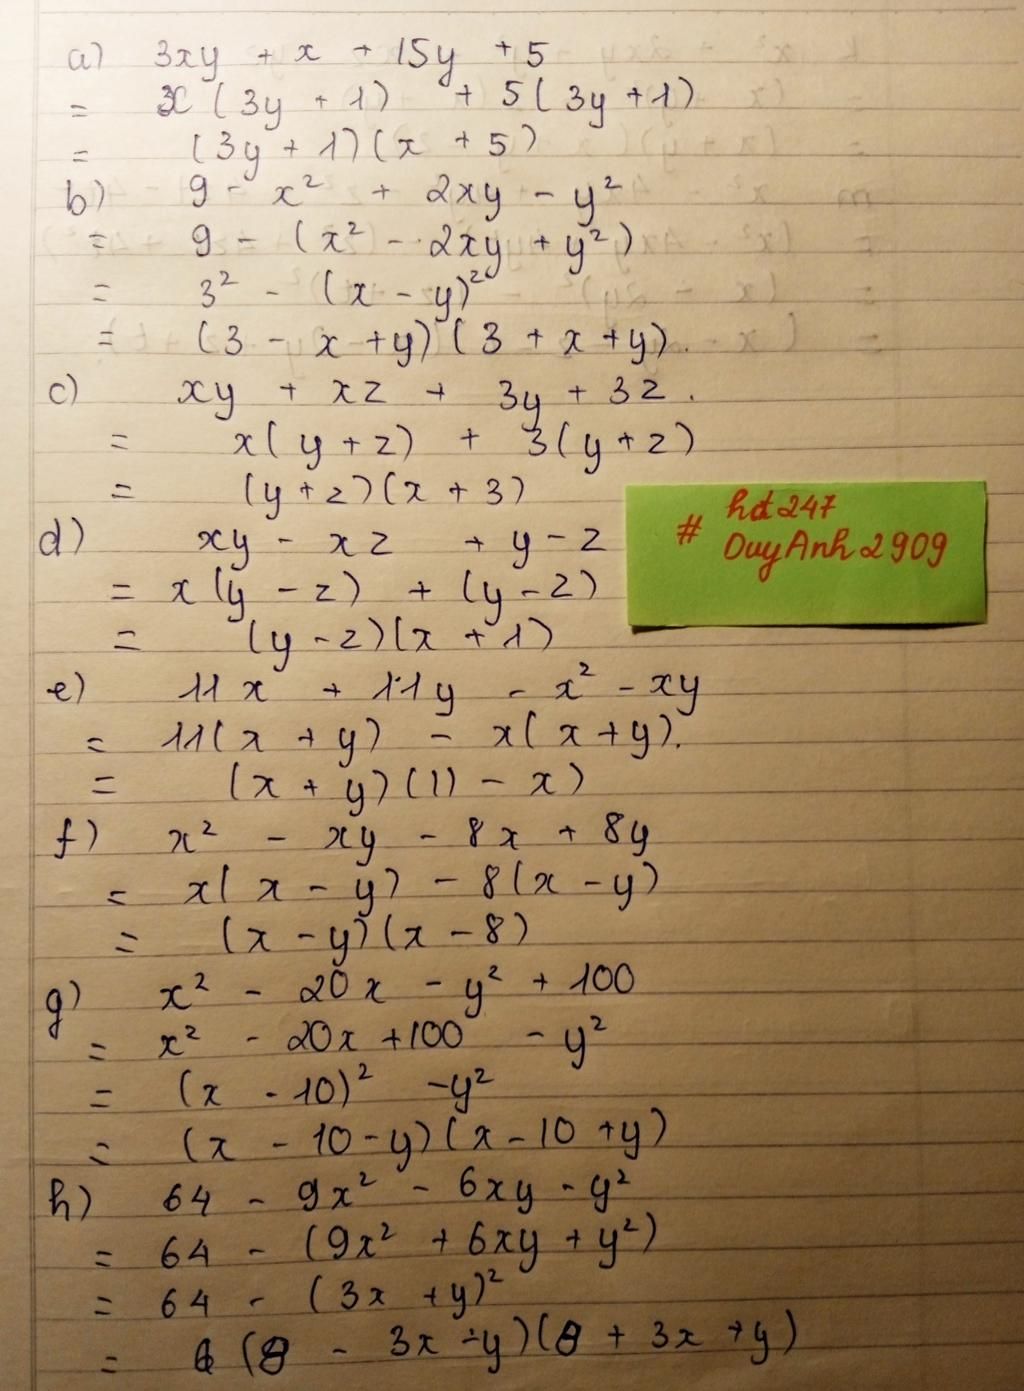 a) 3xy + x + 15y + 5
= x (3y + 1) + 5(3y + 1)
= (3y + 1)(x + 5)
b) 9 - x² + 2xy - y²
= 9 - (x² - 2xy + y²)
= 3² - (x - y)²
= (3 - x + y)(3 + x + y).
c) xy + xz + 3y + 3z.
= x(y + z) + 3(y + z)
= (y + z)(x + 3)
d) xy - xz + y - z
= x(y - z) + (y - z)
= (y - z)(x + 1)
# hdt247
DuyAnh2909
e) 11x + 11y - x² - xy
= 11(x + y) - x(x + y).
= (x + y)(11 - x)
f) x² - xy - 8x + 8y
= x(x - y) - 8(x - y)
= (x - y)(x - 8)
g) x² - 20x - y² + 100
= x² - 20x + 100 - y²
= (x - 10)² - y²
= (x - 10 - y)(x - 10 + y)
h) 64 - 9x² - 6xy - y²
= 64 - (9x² + 6xy + y²)
= 64 - (3x + y)²
= (8 - 3x - y)(8 + 3x + y)